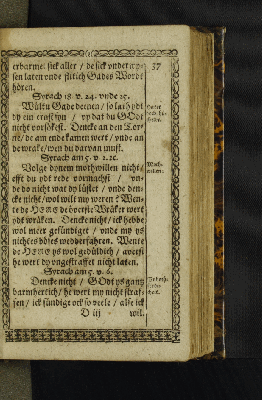 erbarmet sick aller / de sick vndet wy-
sen laten vnde flitich Gades Wordt
hören.
Syrach 18. v. 24. vnde 25.
Wultu Gade deenen / so lath ydt
dy ein ernst syn / vp dat du GOdt
nicht vorsökest. Dencke an den Tor-
ne / de am ende kamen wert / vnde an
de wrake / wen du daruan must.
Syrach am 5. v. 2. 2c.
Volge dynem mothwillen nicht /
efft du ydt rede vormachst / vn-
de do nicht wat dy lüstet / vnde den-
cke nicht / wol wilt my weren? Wen-
te de HERE de överste Wräker wert
ydt wräken. Dencke nicht / ick hebbe
wol meer gesündiget / vnde my ys
nichtes böses wedderfahren. Wente
de HERE ys wol gedüldich / auerst
he wert dy vngestraffet nicht laten.
Syrach am 5. v. 6.
Dencke nicht / GOdt ys gantz
barmhertich / he wert my nicht straf-
fen / ick sündige ock so veele / alse ick
D iij
wil.
37
Moth-
willen.